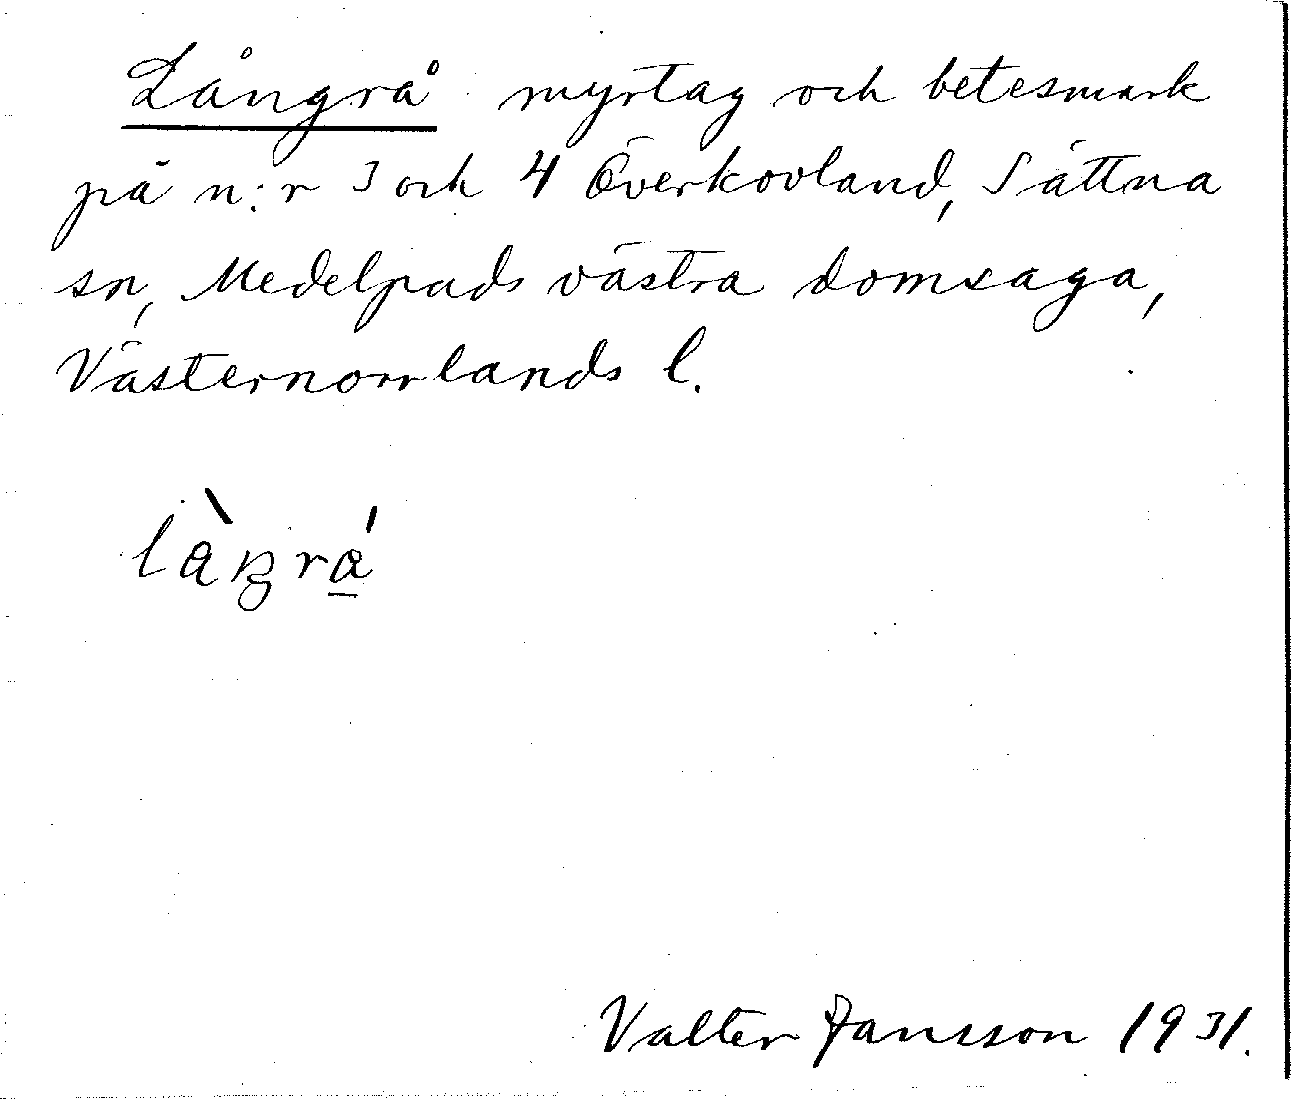 Långrå myrtag och betesmark
på n:r 3 och 4 Överkovland, Sättna
sn, Medelpads västra domsaga,
Västernorrlands l.
Valter Jansson 1931.